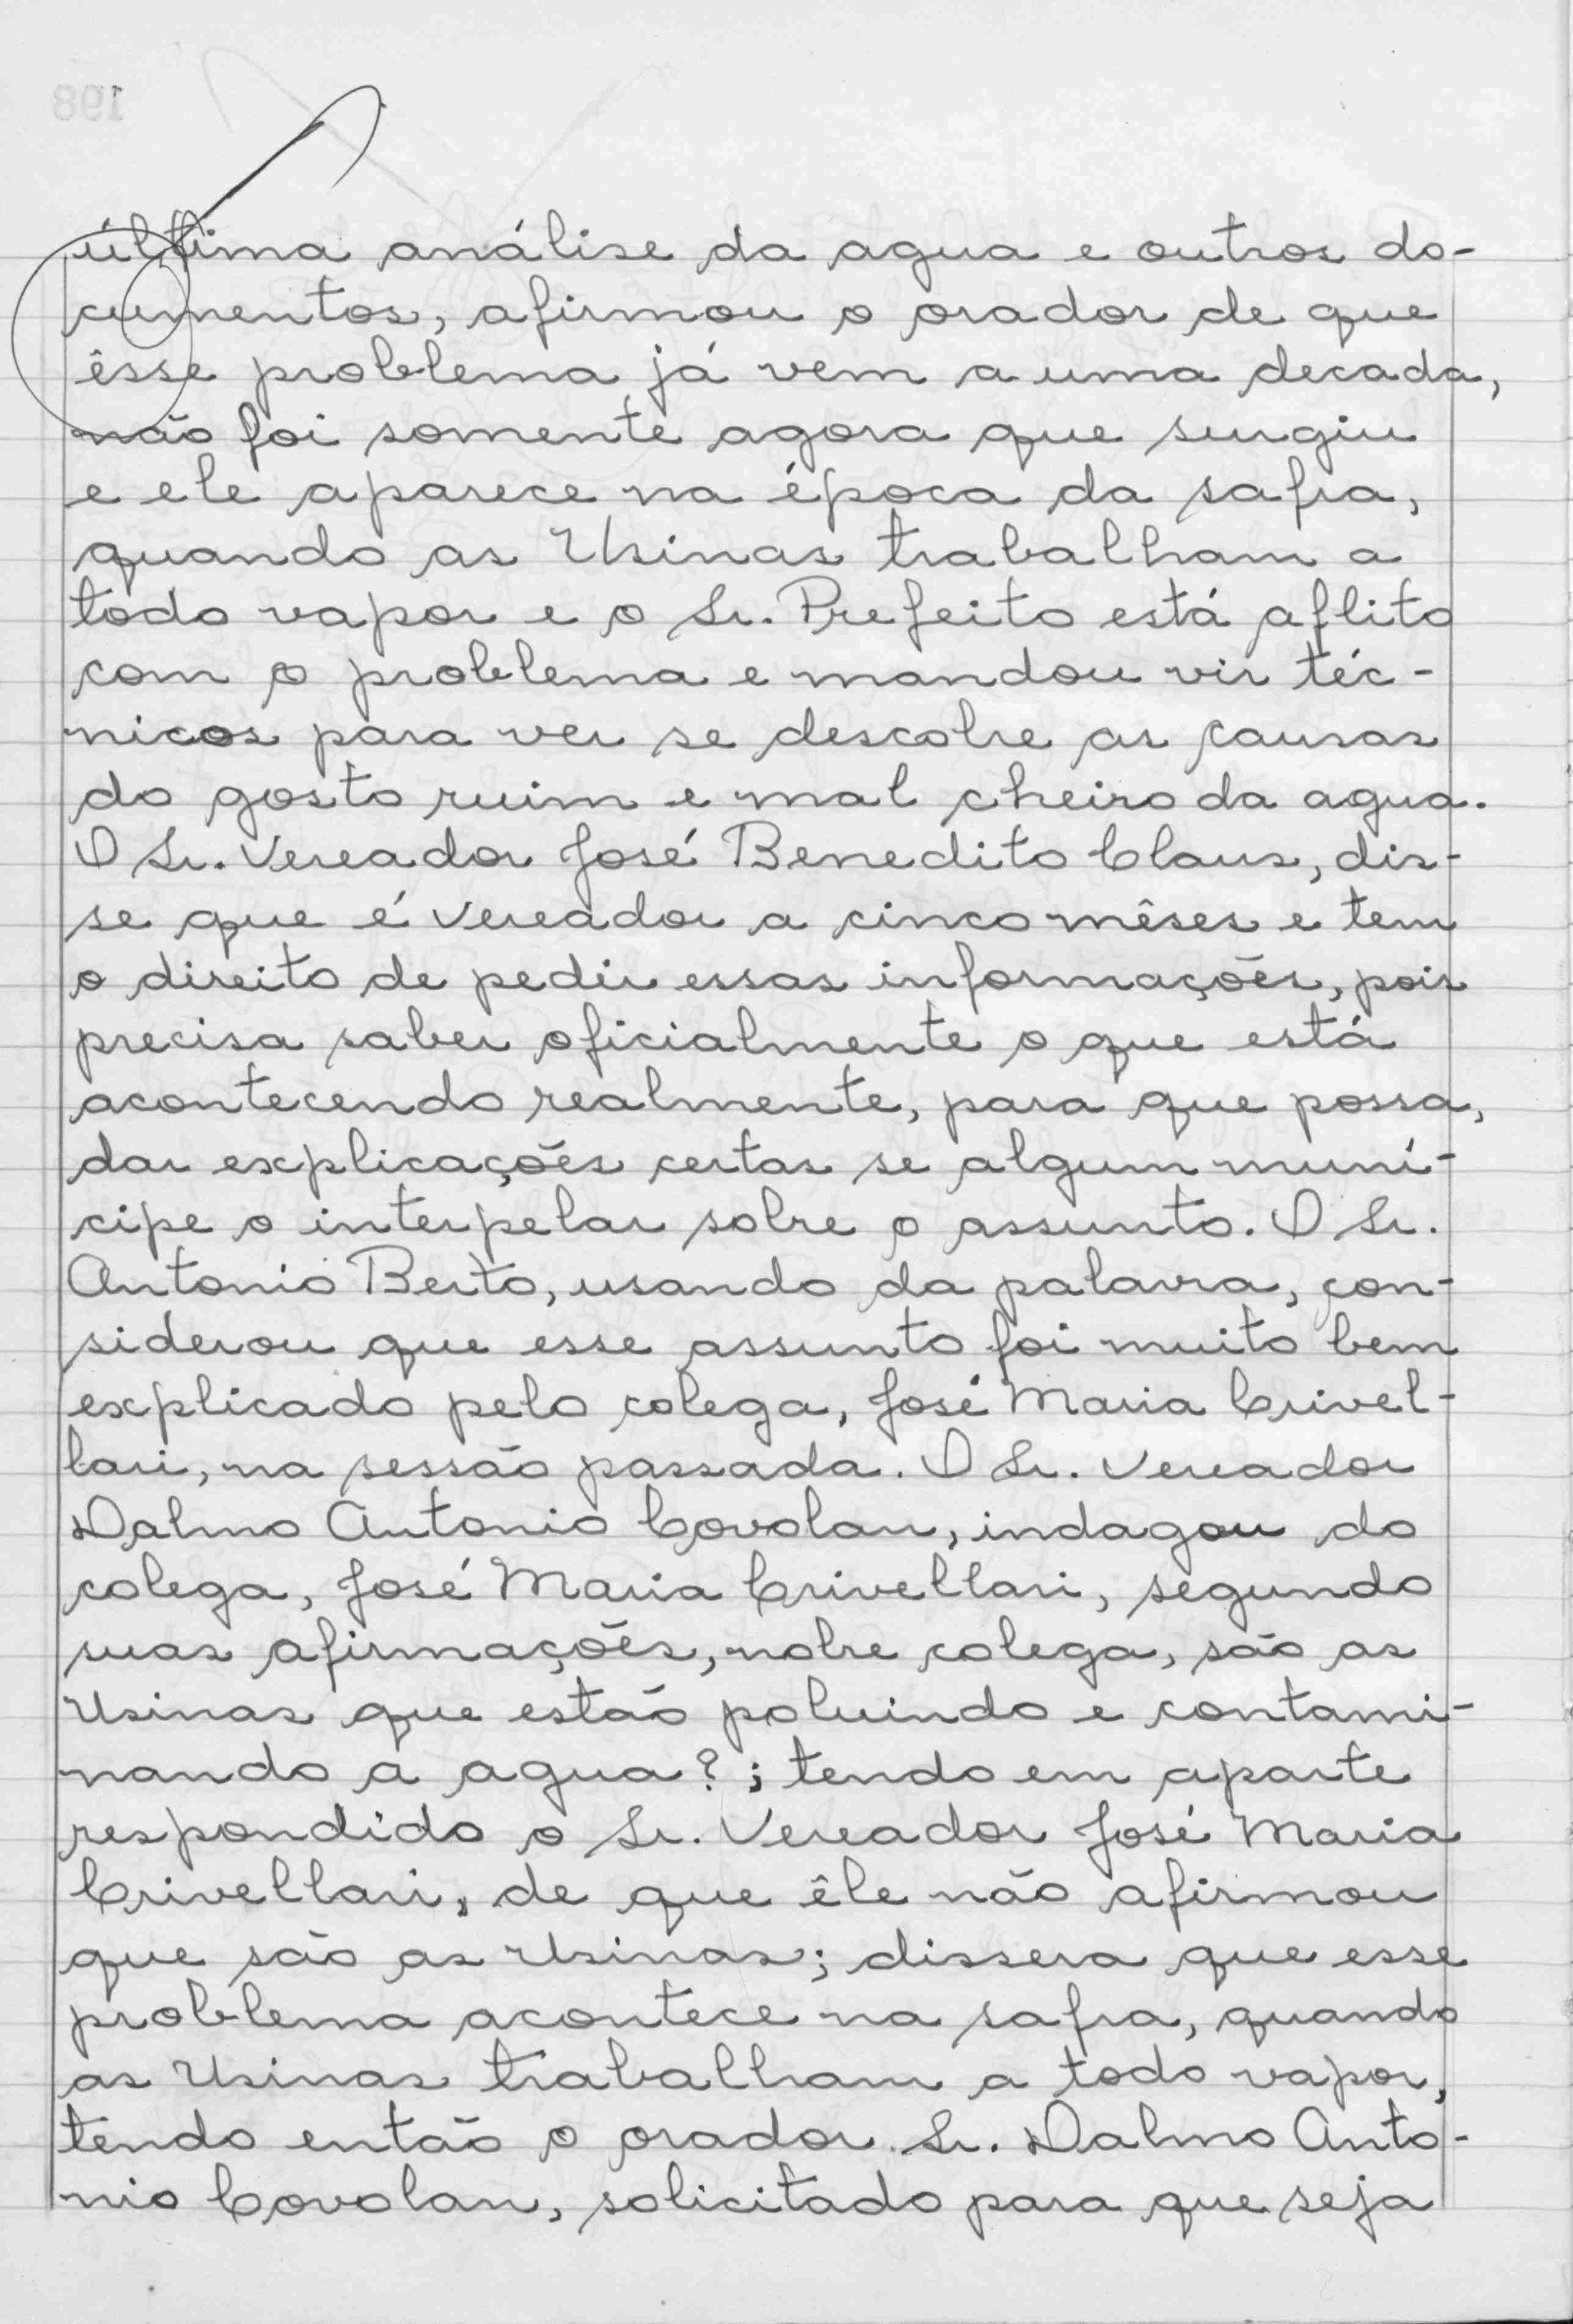 última análise da agua e outros do-
cumentos, afirmou o orador de que
êsse problema já vem a uma decada,
não foi somente agora que surgiu
e ele aparece na época da safra,
quando as Usinas trabalham a
todo vapor e o Sr. Prefeito está aflito
com o problema e mandou vir téc-
nicos para ver se descobre as causas
do gosto ruim e mal cheiro da agua.
O Sr. Vereador José Benedito Claus, dis-
se que é vereador a cinco mêses e tem
o direito de pedir essas informações, pois
precisa saber oficialmente o que está
acontecendo realmente, para que possa,
dar explicações certas se algum muní-
cipe o interpelar sobre o assunto. O Sr.
Antonio Berto, usando da palavra, con-
siderou que esse assunto foi muito bem
explicado pelo colega, José Maria Crivel-
lari, na sessão passada. O Sr. Vereador
Dalmo Antonio Covolan, indagou do
colega, José Maria Crivellari, segundo
suas afirmações, nobre colega, são as
Usinas que estão poluindo e contami-
nando a agua?; tendo em aparte
respondido o Sr. Vereador José Maria
Crivellari, de que êle não afirmou
que são as Usinas; dissera que esse
problema acontece na safra, quando
as Usinas trabalham a todo vapor,
tendo então o orador Sr. Dalmo Anto-
nio Covolan, solicitado para que seja